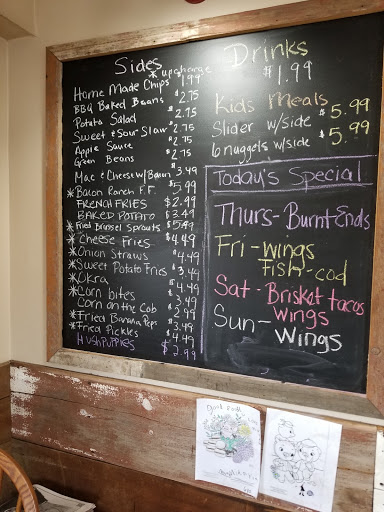 Sides
* upcharge
Home Made Chips $1.99
BBQ Baked Beans $2.75
Potato Salad $2.75
Sweet & Sour Slaw $2.75
Apple Sauce $2.75
Green Beans
Mac & Cheese w/Bacon $3.49
*Bacon Ranch F.F. $5.99
FRENCH FRIES $2.99
BAKED POTATO $3.49
*Fried Brussel Sprouts $5.49
*Cheese Fries $4.49
*Onion Straws $4.49
*Sweet Potato Fries $3.49
*Okra $4.49
*Corn bites $3.49
Corn on the Cob $2.99
*Fried Banana Peps $3.49
*Fried Pickles $4.49
HUSHPUPPIES $2.99
Drinks
$1.99
Kids Meals
Slider w/side $5.99
6 nuggets w/side $5.99
Today's Special
Thurs-Burnt Ends
Fri-Wings
Fish-cod
Sat-Brisket tacos
Wings
Sun-Wings